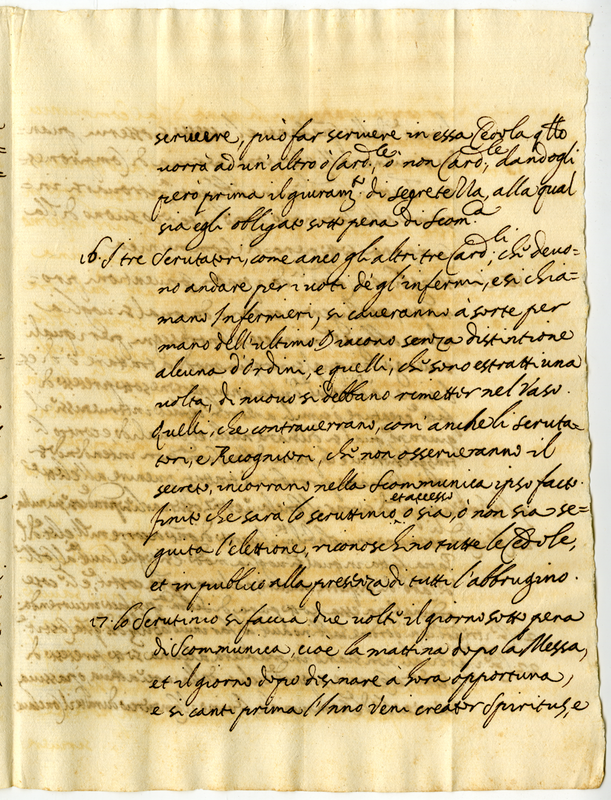 scrivere, può far scrivere in essa Cedola qtto
vorrà ad un'altro ò Card.le, ò non Card.le, dandogli
però prima il giuramto di segretezza, alla qual
sia egli obligato sotto pena di Scom.ca
16. I tre Scrutatori, come anco gli altri tre Card.li, che devo=
no andare per i voti de gl'infermi, e si chia=
mano Infermieri, si caveranno à sorte per
mano dell'ultimo Diacono senza distintione
alcuna d'Ordini, e quelli, che sono estratti una
volta, di nuovo si debbano rimetter nel Vaso.
Quelli, che contraverrano, com'anche li Scruta=
tori, e Recognitori, che non osserveranno il
secreto, incorrano nella Scommunica ipso facto.
et accesso
finito che sarà lo scruttinio, ò sia, ò non sia se=
guita l'elettione, riconoschino tutte le Cedole,
et in publico alla presenza di tutti l'abbrugino.
17. Lo Scrutinio si faccia due volte il giorno sotto pena
di Scommunica, cioè la mattina dopo la Messa,
et il giorno dopo disinare à hora opportuna,
e si canti prima l'Inno Veni creator Spiritus, e